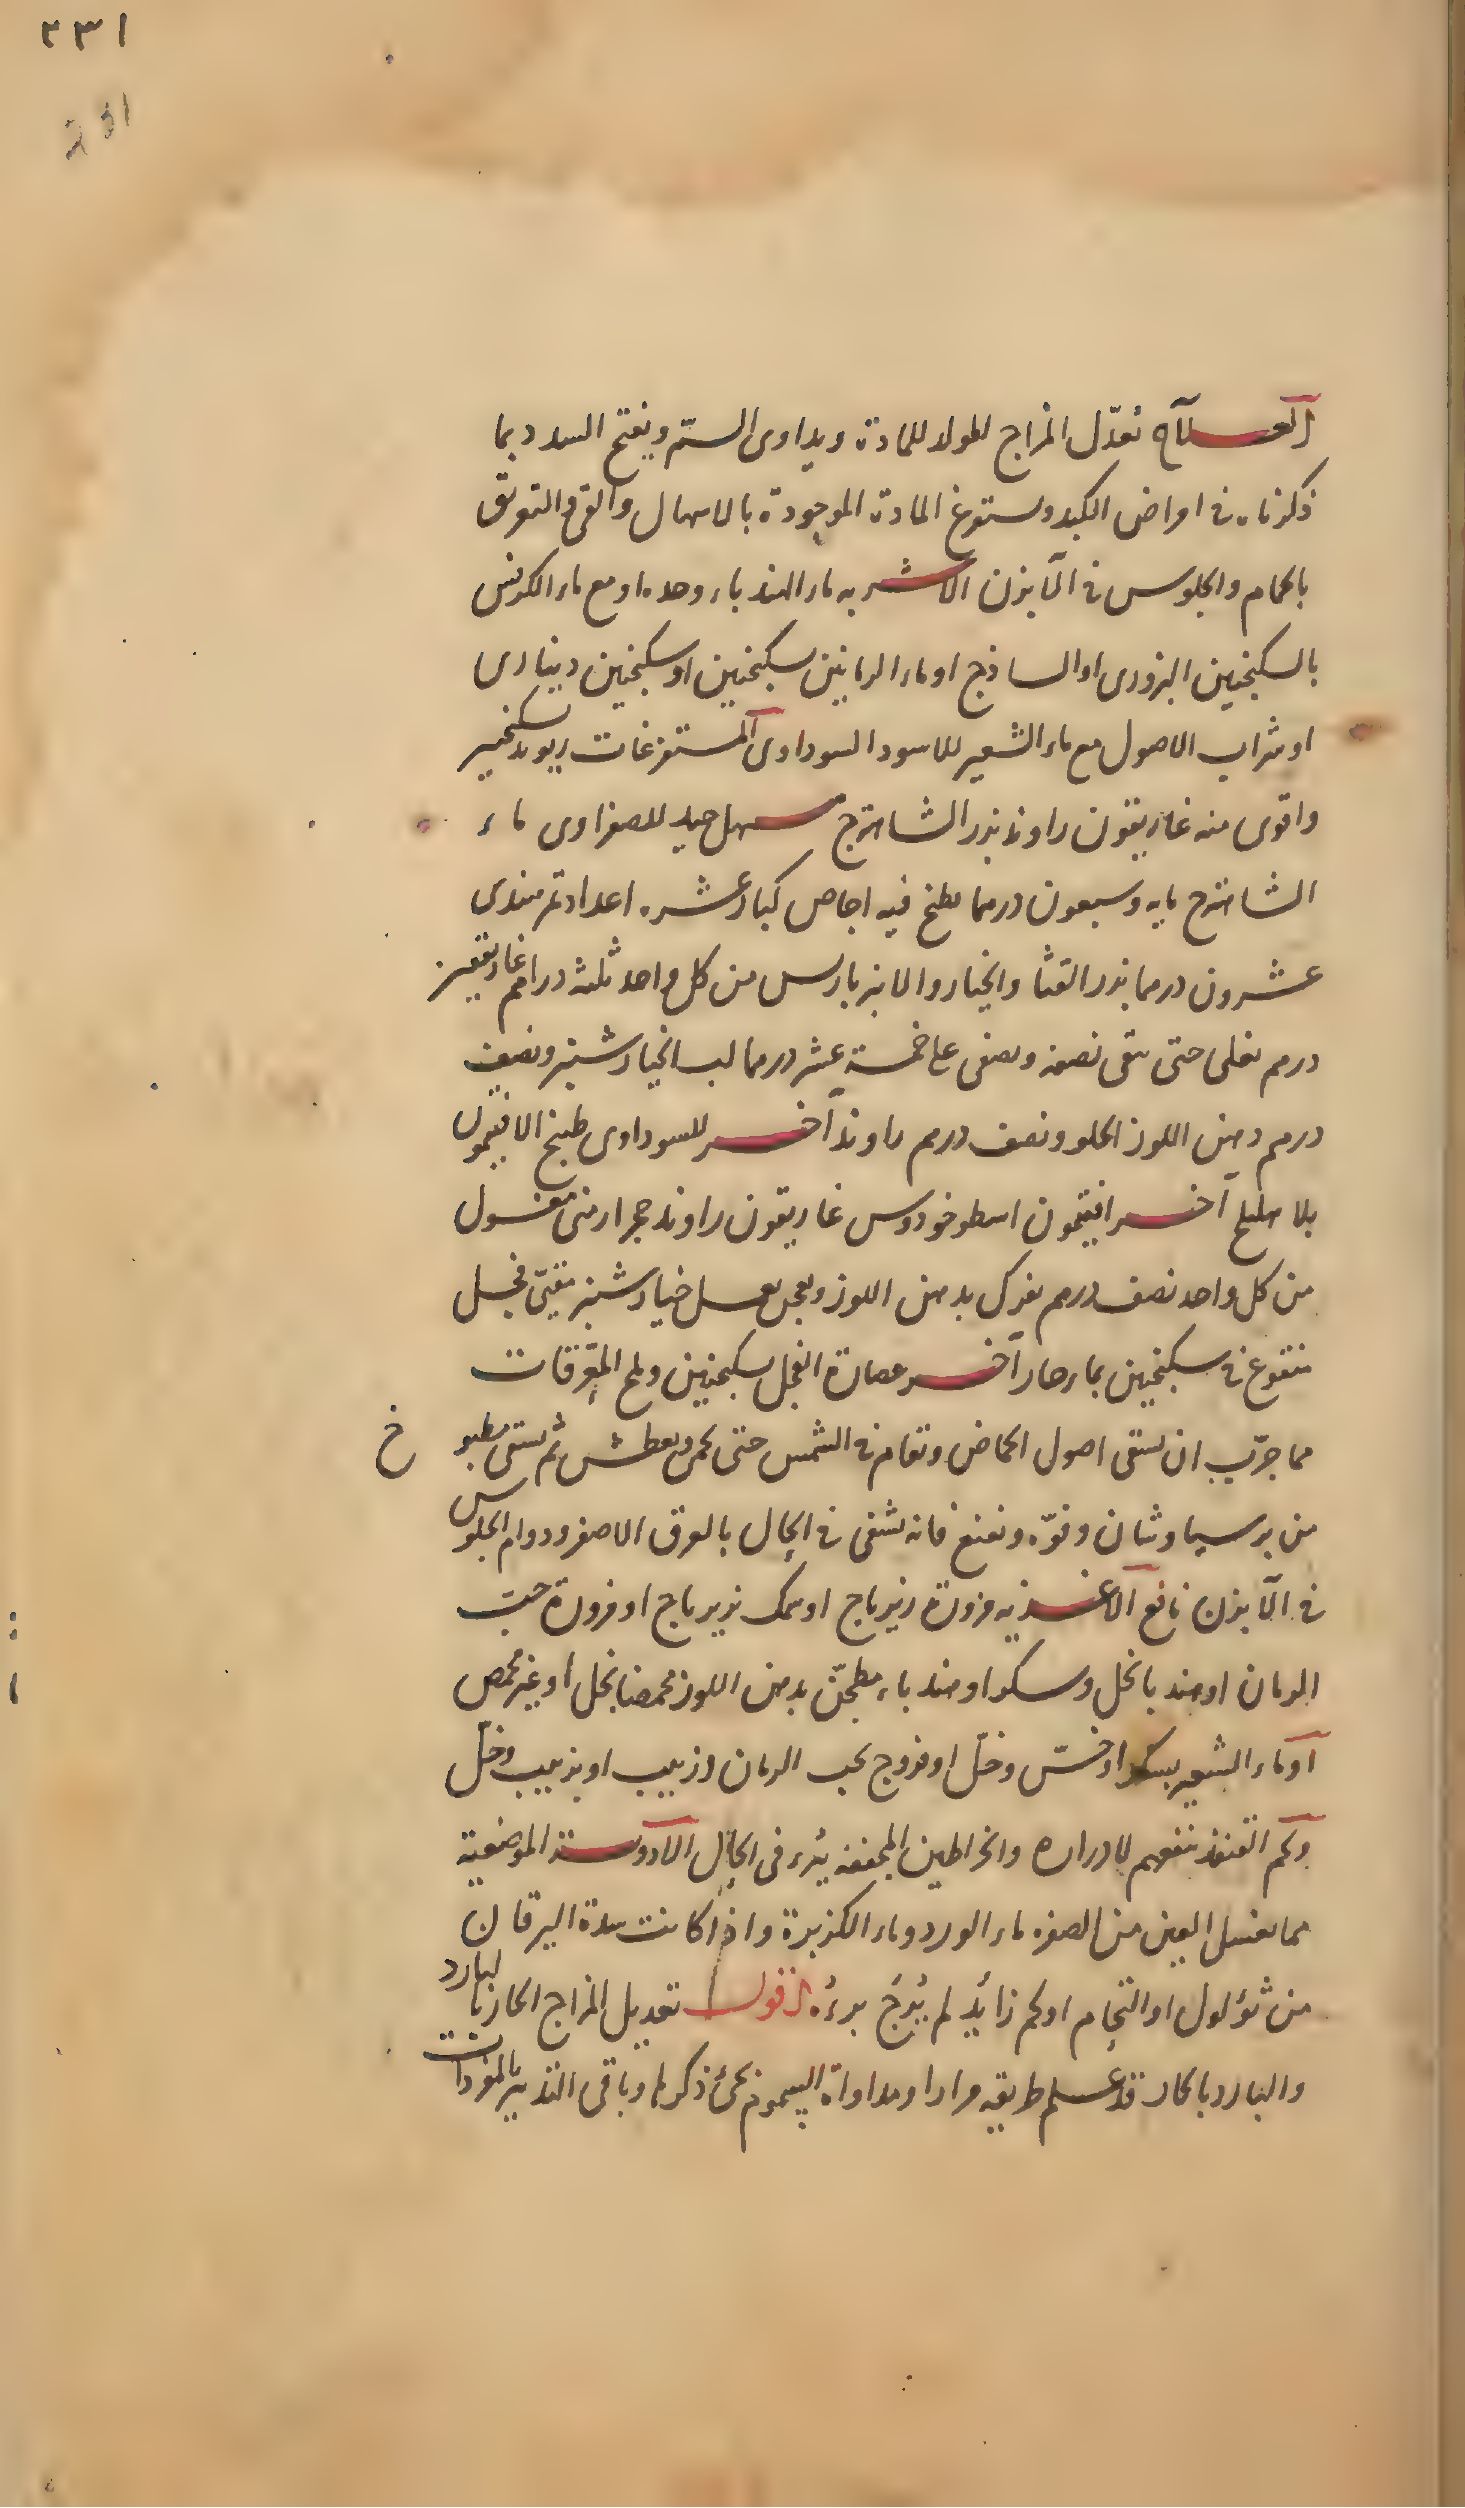 ٢٣١
العلاج تعدّل المزاج المولد للمادة ويداوى السمّ ويفتح السدد بما
ذكرناه فى امراض الكبد وستفرغ المادة الموجودة بالاسهال والقى والتعريق
بالحمام والجلوس فى الآبزن الاشربه ماء الهندباء وحده او مع ماء الكرفس
بالسكنجبين البزورى او الساذج او ماء الرمانين بسكنجبين او سكنجبين دينارى
او شراب الاصول مع ماء الشعير للاسود السوداوى المستفرغات ريوند سكنجبين
واقوى منه غاريقون راوند بزر الشاهترج مسهل جيد للصفراوى ماء
الشاهترج مايه وسبعون درهما يطبخ فيه اجاص كبار عشره اعداد تمر هندى
عشرون درهما بزر القثا والخيار والانبرباريس من كل واحد ثلثة دراهم غاريقون
درهم يغلى حتى يبقى نصفه ويصفى على خمسة عشر درهما لب الخيار شنبر ونصف
درهم دهن اللوز الحلو ونصف درهم راوند آخر للسوداوى طبيخ الافتيمون
بلا هليلج آخر افتيمون اسطوخودوس غاريقون راوند حجر ارمنى مغسول
من كل واحد نصف درهم يفرك بدهن اللوز ويعجن بعسل خيار شنبر مقيّئ فجل
منقوع فى سكنجبين بماء حار آخر عصارة الفجل بسكنجبين وملح المعرّقات
مما جرّب ان يسقى اصول الحماض وتقام فى الشمس حتى يحمى ويعطش ثم يسقى مطبوخ
من برسياوشان وفوّه ونعنع فانه يشفى فى الحال بالعرق الاصفر ودوام الجلوس
فى الآبزن نافع الاغذيه مزورة زيرباج او سمك بزيرباج او مزورة حبّ
الرمان او هندبا بخل وسكر او هندباء مطجّن بدهن اللوز محمضا بخل او غير محمض
او ماء الشعير بسكر او خسّ وخلّ او فروج بحب الرمان وزبيب او بزبيب وخلّ
ولحم القنفذ ينفعهم لادراره والخراطين المجففه يبرء فى الحال الادوية الموضعية
مما يغسل العين من الصفره ماء الورد وماء الكزبرة واذا كانت سدة اليرقان
من ثؤلول او التحام او لحم زائد لم يُرجَ برءُه اقول تعديل المزاج الحار بالبارد
والبارد بالحار قد علم طريقه مرارا ومداواة السموم يجئ ذكرها وباقى التدبير بالمفردات